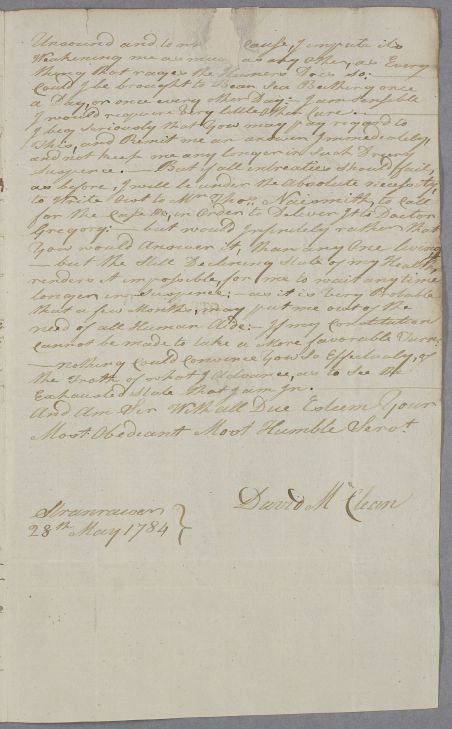 Unsound and to no cause, I impute its
Weakening me as much as any other, as Every
thing that rages the Humers Does so:
Could I be brought to Bear Sea Bathing once
a Day, or once every other Day: I am sensible
I would require very little other Cure. —
I beg seriously that You may pay regard to
this, and Remit me an answer Immediately,
and not keep me any longer in Such Dreary
Suspence. — But if all entreaties should fail,
as before, I will be under the Absolute necessity,
to Write Out to Mr Thos. Naesmith, to Call
for the Case &c, in Order to Deliver It to Doctor
Gregory: — but would Infinitely rather that
You would Answer it, than any One living
— but the Still Declining State of my Health
renders it impossible, for me to wait any time
longer in Suspence; — as it is Very Probable
that a few Months, may put me out of the
need of all Human Aide: — If my Constitution
cannot be made to take a More favorable Turn:
— nothing Could Convince You so Effectualy, of
the Troth of what I Advance, as to see the
Exhausted State that I am In.
And Am Sir With all Due Esteem Your
Most Obediant Most Humble Servt.
David Mc Clean
Stranrawer
28th May 1784